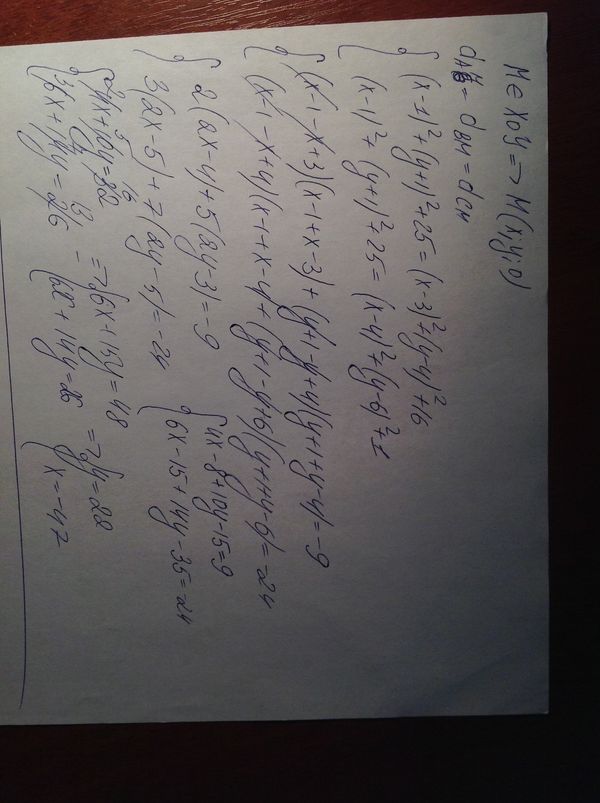 M ∈ xoy => M(x; y; 0)
d_AM = d_BM = d_CM
{ (x-1)²+(y+1)²+25 = (x-3)²+(y-4)²+16
{ (x-1)²+(y+1)²+25 = (x-4)²+(y-6)²+1
{ (x-1-x+3)(x-1+x-3)+(y+1-y+4)(y+1+y-4)=-9
{ (x-1-x+4)(x-1+x-4)+(y+1-y+6)(y+1+y-6)=-24
{ 2(2x-4)+5(2y-3)=-9
{ 3(2x-5)+7(2y-5)=-24
{ 4x-8+10y-15=9
{ 6x-15+14y-35=-24
{ 4x+10y=32 => { 6x+15y=48 => { y=28
{ 6x+14y=26 - { 6x+14y=26 { x=-47